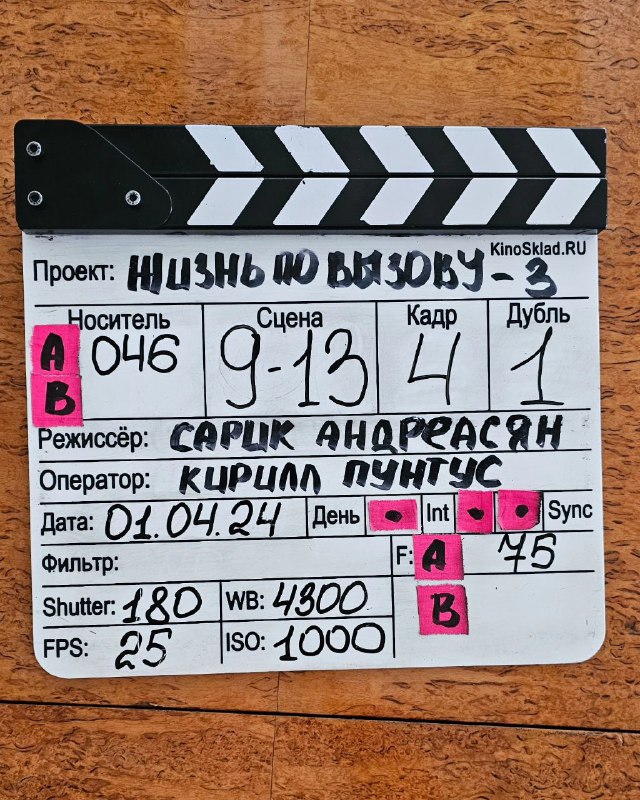 KinoSklad.RU
Проект: ЖИЗНЬ ПО ВЫЗОВУ-3
Носитель Сцена Кадр Дубль
A 046 9-13 4 1
B
Режиссёр: САРИК АНДРЕАСЯН
Оператор: КИРИЛЛ ПУНТУС
Дата: 01.04.24 День Int Sync
Фильтр: F: A 75
Shutter: 180 WB: 4300 B
FPS: 25 ISO: 1000